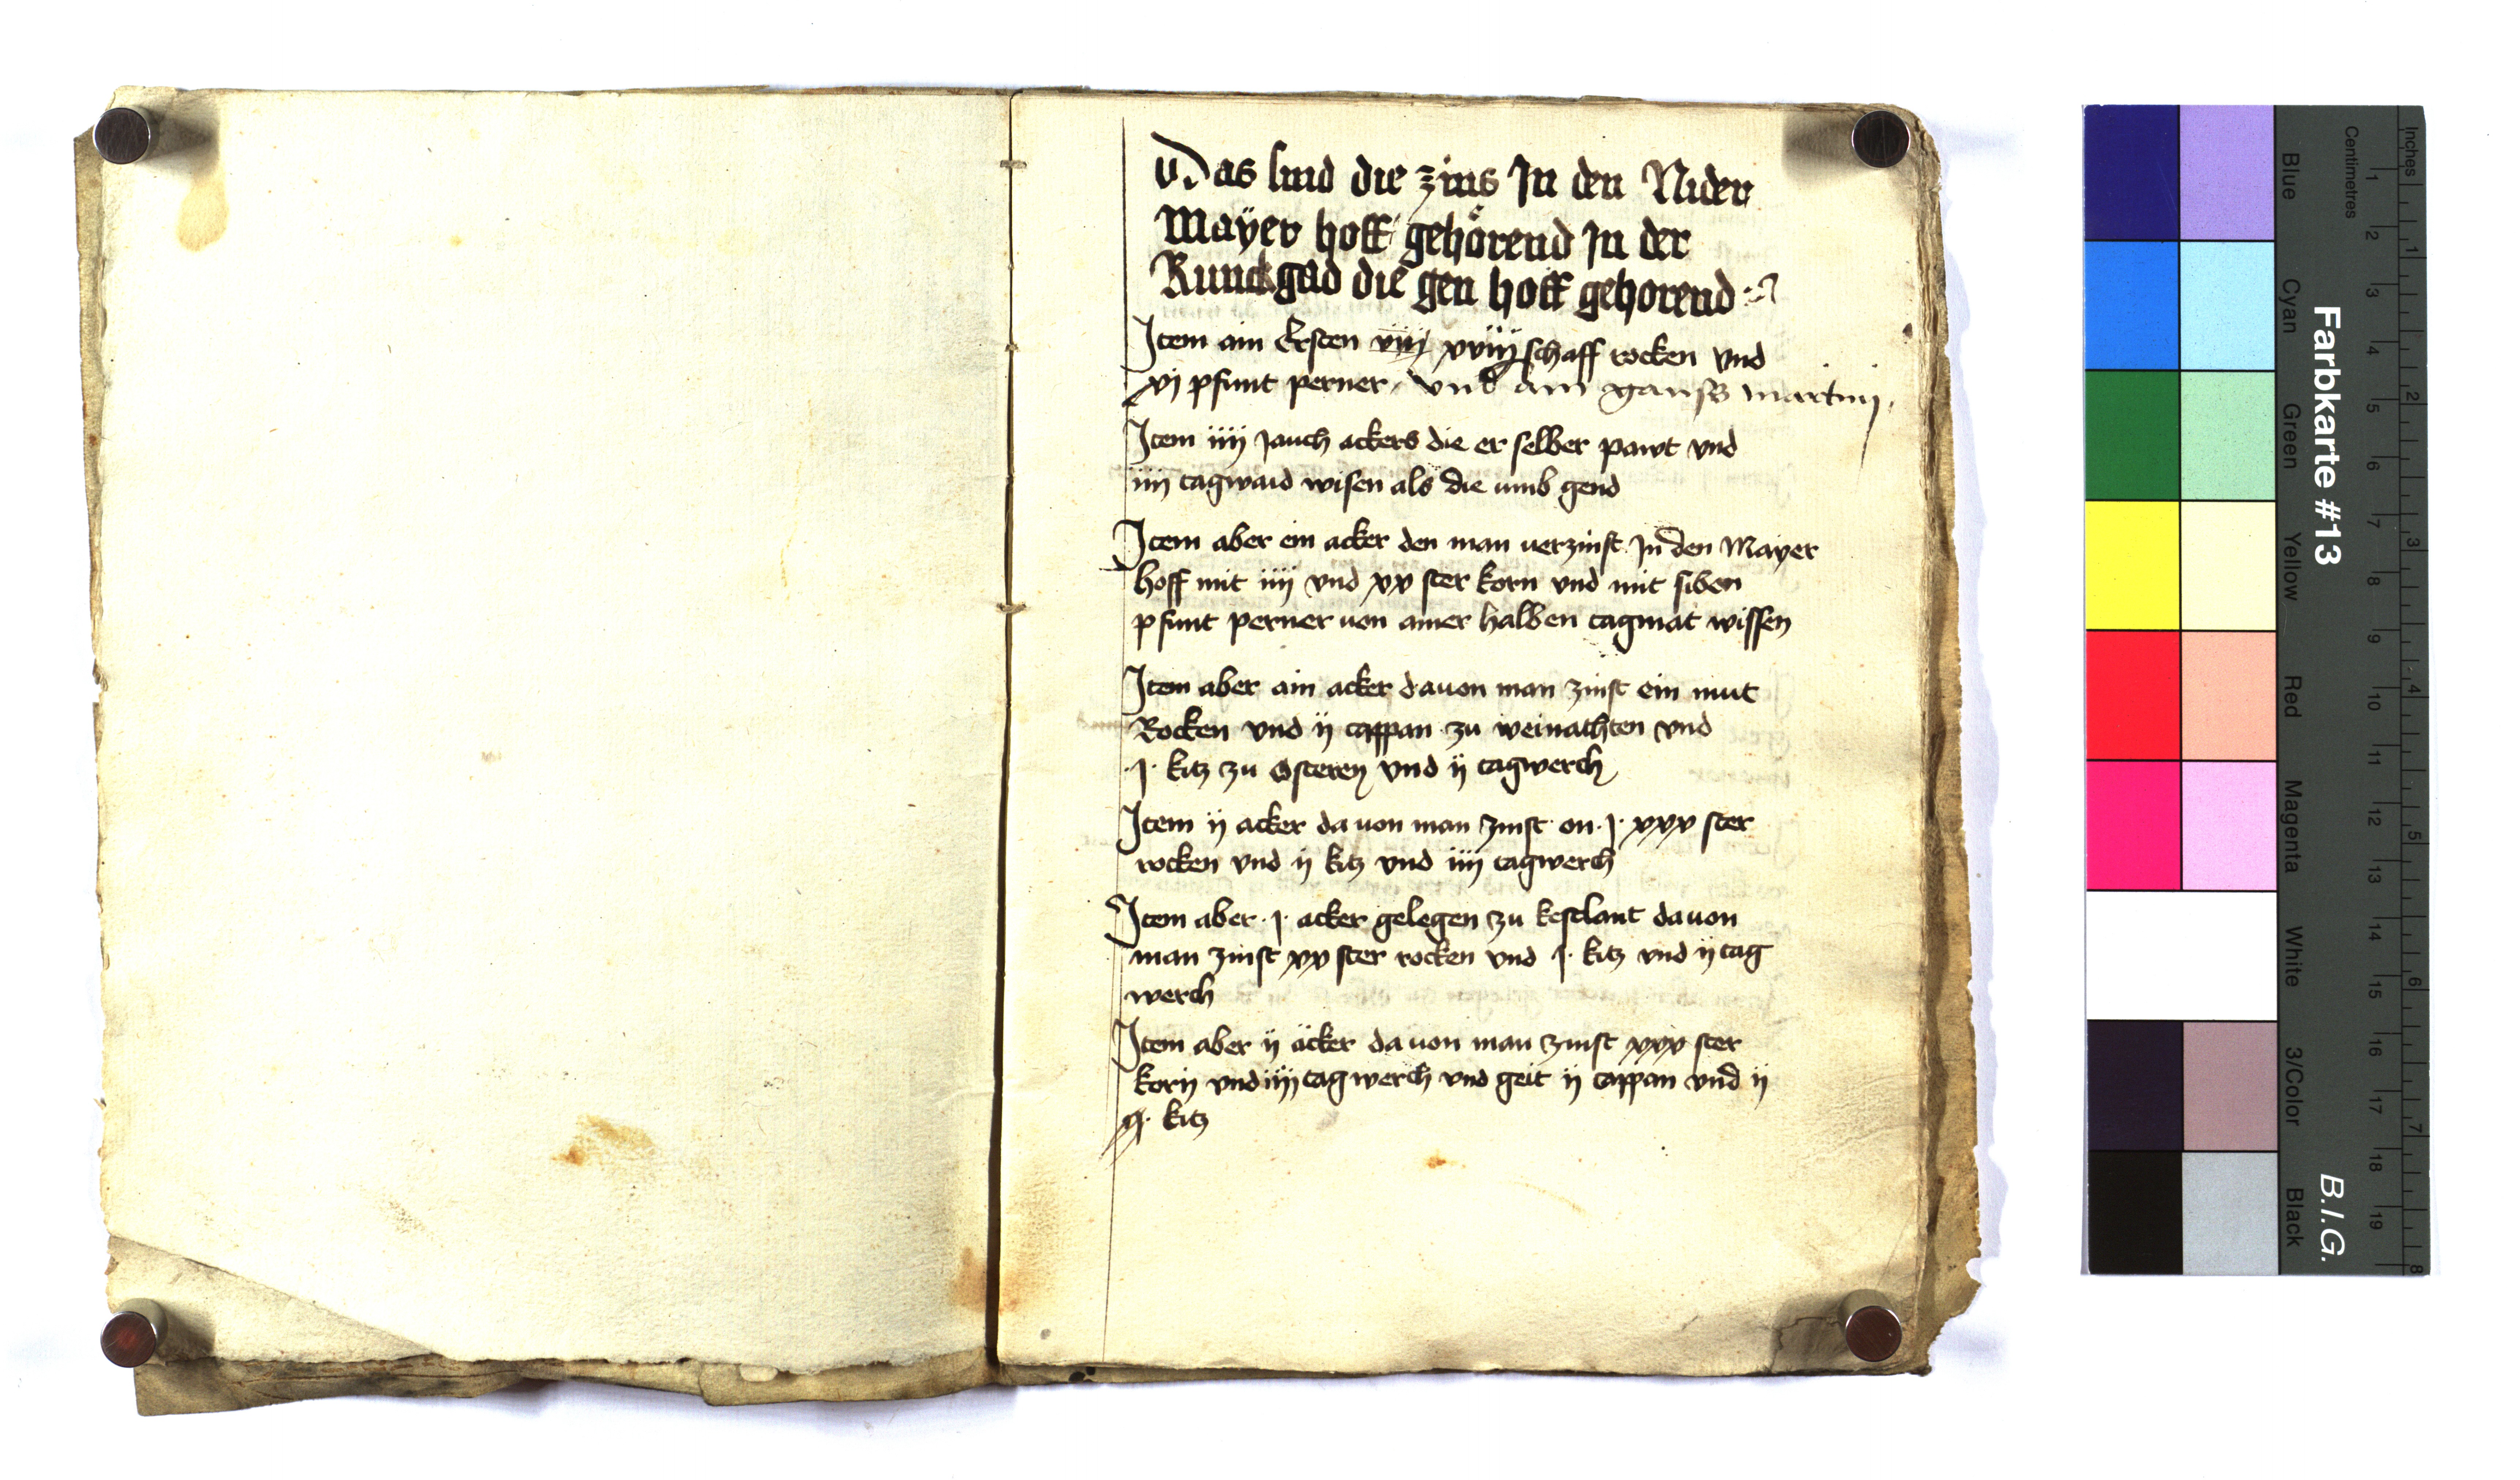 Das sind die zins In den Nider
Mayer hoff gehörend In der
Runckgad die gen hoff gehorend
Item ain Ersten viij xviij schaff rocken vnd
xj pfunt perner vnd ain ganss martinj
Item iiij Jauch ackers die er selber pawt vnd
iiij tagwaid wisen als die umb gend
Item aber ein acker den man uerzinst In den Mayer
hoff mit iiij vnd xx ster korn vnd mit siben
pfunt perner uon ainer halben tagmat wissen
Item aber ain acker dauon man zinst ein mut
Rocken vnd ij cappan zu weinachten vnd
·j· kitz zu Osteren vnd ij tagwerch
Item ij acker da uon man zinst on ·j· xxx ster
rocken vnd ij kitz vnd iiij tagwerch
Item aber ·j· acker gelegen zu kestlant dauon
man zinst xx ster rocken vnd j· kitz vnd ij tag
werch
Item aber ij äcker da uon man zinst xxx ster
korn vnd iiij tagwerch vnd geit ij cappan vnd ij
kitz
Farbkarte #13
B.I.G.
Blue
Cyan
Green
Yellow
Red
Magenta
White
3/Color
Black
Centimetres
1 2 3 4 5 6 7 8 9 10 11 12 13 14 15 16 17 18 19
Inches
1 2 3 4 5 6 7 8